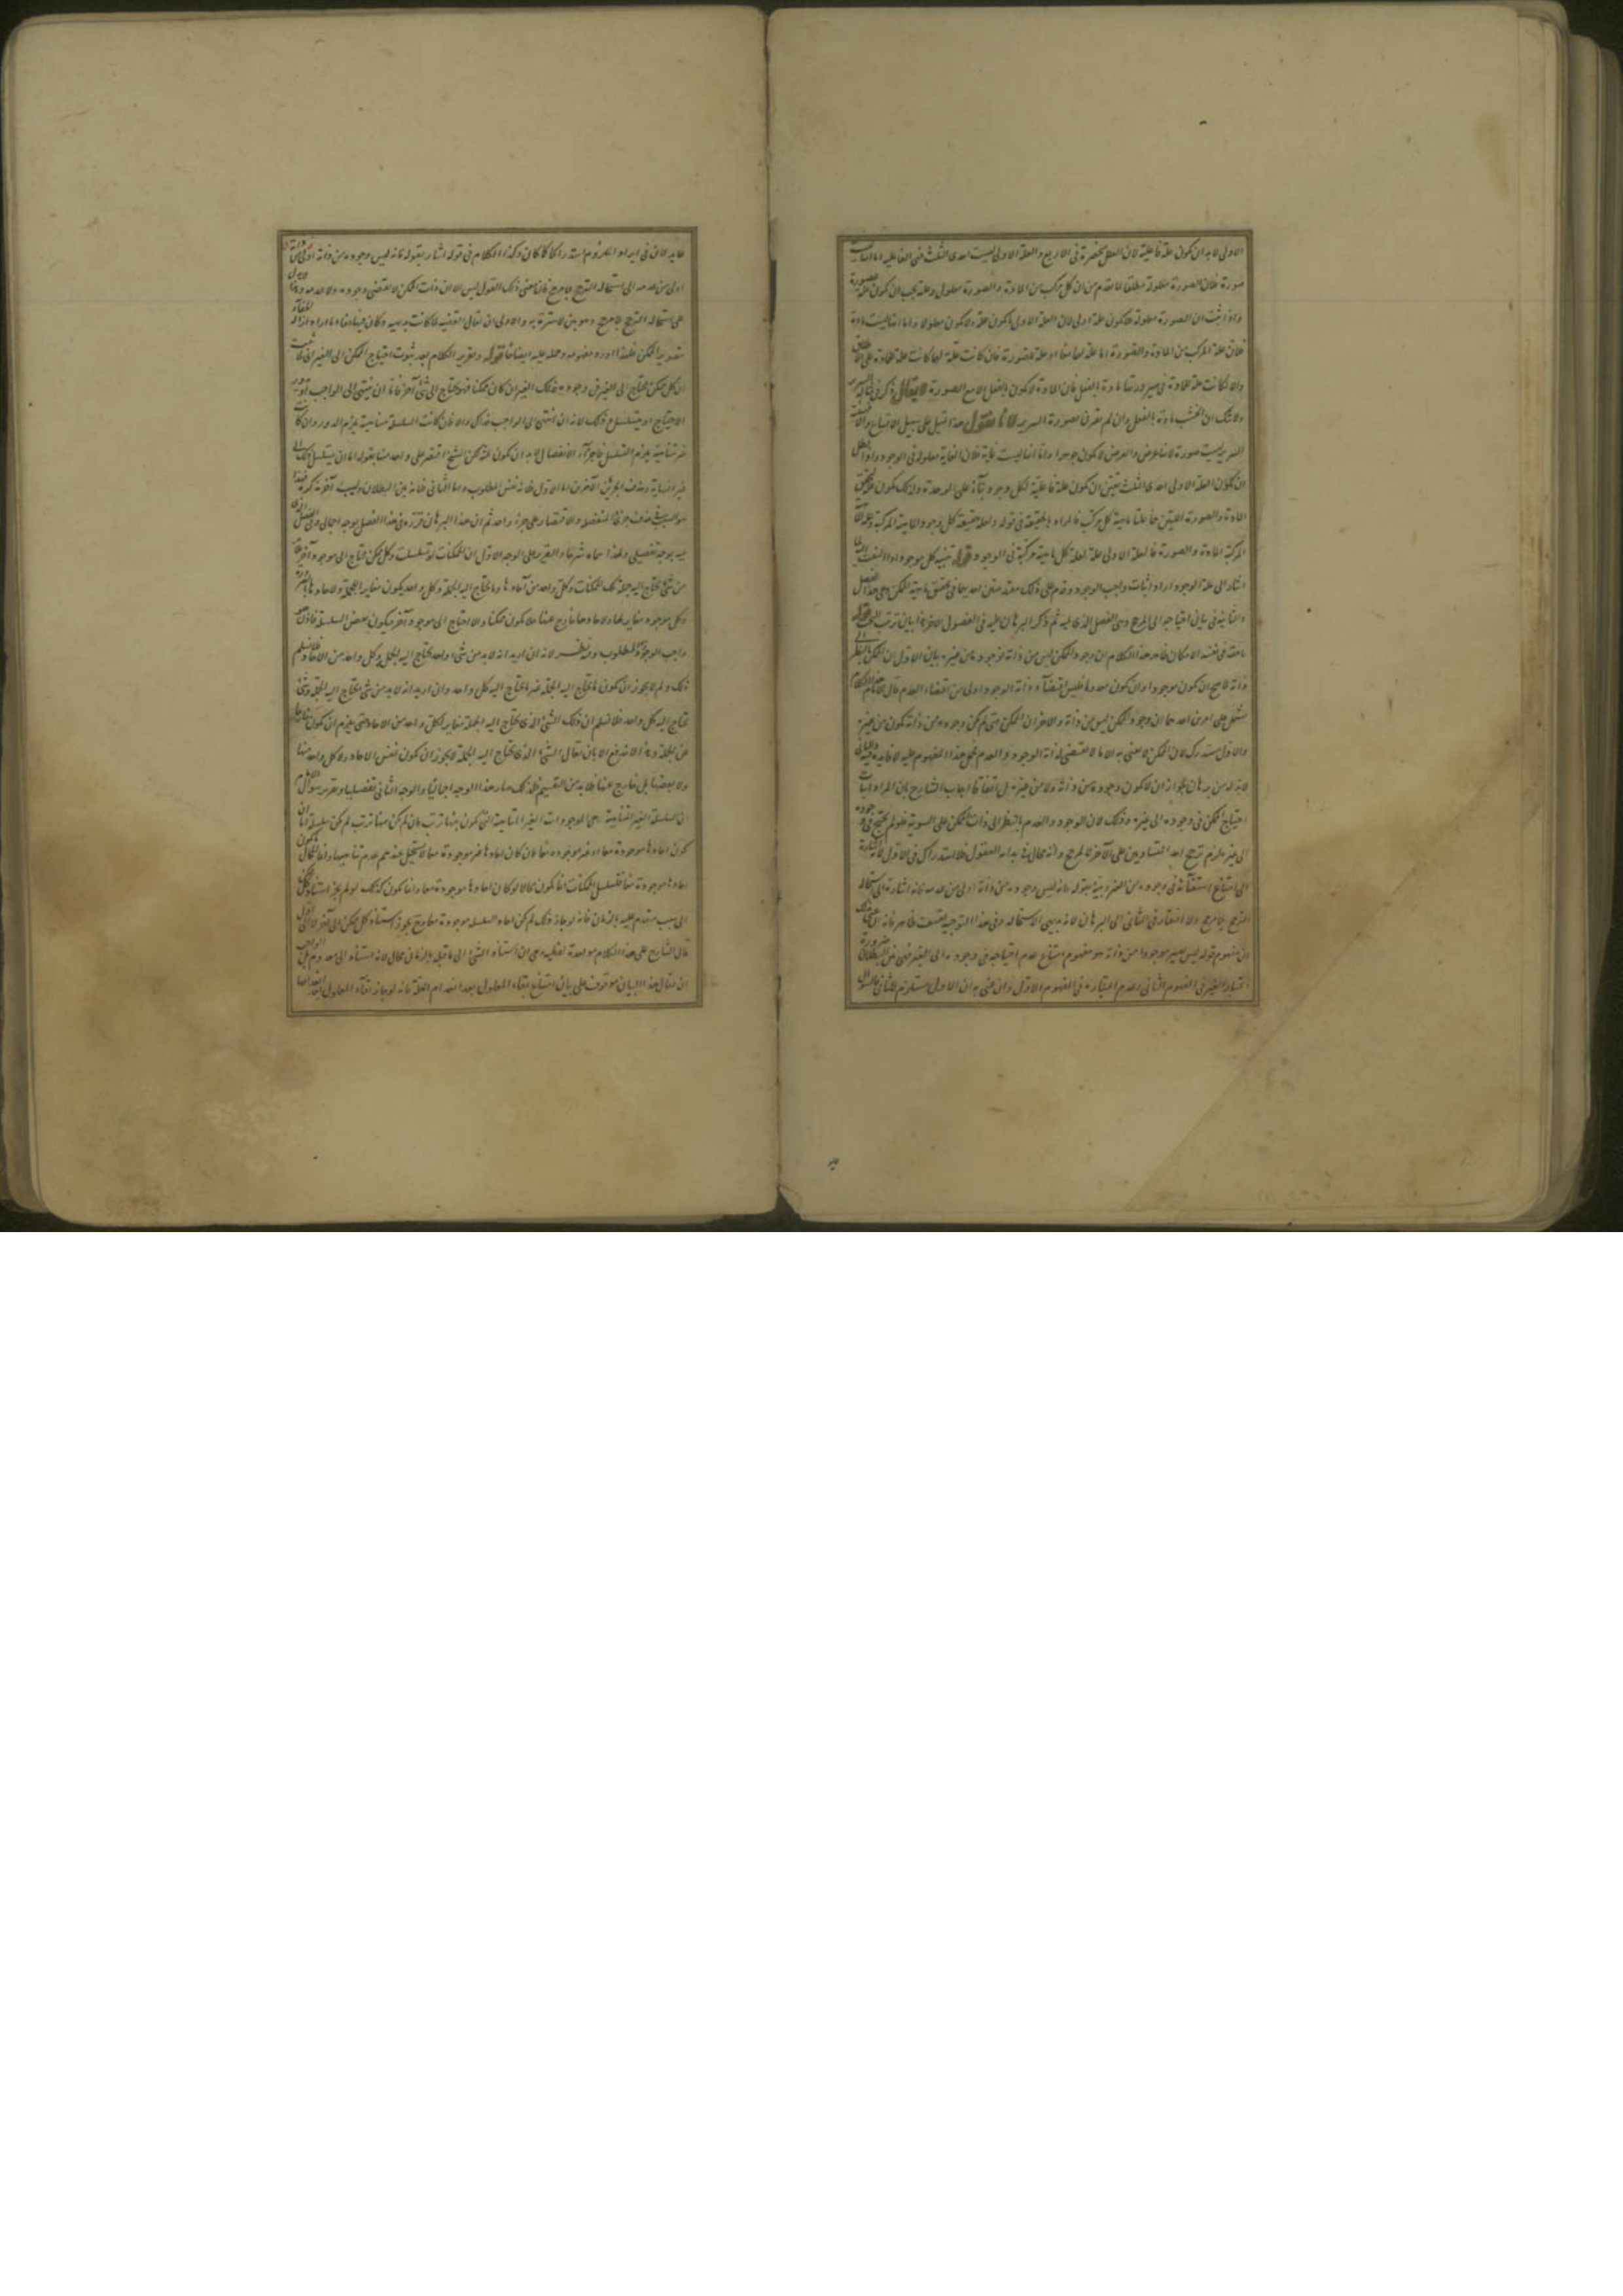 الاولى لا بد ان تكون علة فاعلية لان العلل منحصرة فى الاربع والعلة الاولى ليست احدى الثلث فهى الفاعلية اما انها ليست
صورة فلان الصورة معلولة مطلقا لما تقدم من ان كل مركب من المادة والصورة معلول وعلته يجب ان تكون علة لصورته
واذا ثبت ان الصورة معلولة فلا تكون علة اولى لان العلة الاولى ما تكون علة ولا تكون معلولا واما انها ليست مادة
فلان علة المركب من المادة والصورة اما علة لهما معا او علة للصورة فان كانت علة لهما كانت علة للمادة على الاطلاق
والا لكانت علة للمادة فى صيرورتها مادة بالفعل فان المادة لا تكون بالفعل الا مع الصورة لا يقال ذكر فى السرير
ولا شك ان الخشب مادة بالفعل وان لم يقترن بصورة السرير لانا نقول هذا تمثيل على سبيل الاتساع والا فهيئة
السرير ليست صورة لانها عرض والعرض لا يكون جوهرا واما انها ليست غاية فلان الغاية معلولة فى الوجود واذا بطل
ان تكون العلة الاولى احدى الثلث تعين ان تكون علة فاعلية لكل وجود بناء على الوحدة وكذلك تكون علة لتحقق
المادة والصورة اللتين هما علتا ماهية كل مركب فالمراد بالحقيقة فى قوله ولعلة حقيقة كل وجود الماهية المركبة وعلة
المركبة المادة والصورة فالعلة الاولى علة لعلة كل ماهية مركبة فى الوجود قوله تنبيه كل موجود اذا التفت
اشار الى علة الوجود اراد اثبات واجب الوجود وقدم على ذلك مقدمتين احديهما فى تحقيق ماهية الممكن وهى هذا الفصل
والثانية فى بيان احتياجه الى المرجح وهى الفصل الذى يليه ثم ذكر البرهان عليه فى الفصول الاخر
ما حقه فى نفسه الامكان ظاهر هذا الكلام ان وجود الممكن ليس من ذاته فوجوده من غيره بيان الاول ان الممكن بالنظر الى
ذاته لا يصح ان يكون موجودا وان يكون معدوما فليس اقتضاء ذاته الوجود اولى من اقتضاء العدم قال الامام الكلام
مشتمل على امرين احدهما ان وجود الممكن ليس من ذاته والاخر ان الممكن متى لم يكن وجوده من ذاته يكون من غيره
والاول مستدرك لان الممكن لا معنى به الا ما لا يقتضى لذاته الوجود والعدم فحمل هذا المفهوم عليه لا فايدة فيه والثانى
لا بد له من برهان لجواز ان لا يكون وجوده من ذاته ولا من غيره بل اتفاقا اجاب الشارح بان المراد اثبات
احتياج الممكن فى وجوده الى غيره وذلك لان الوجود والعدم بالنظر الى ذات الممكن على السوية فلو لم يحتج فى وجوده
الى غيره يلزم ترجح احد المتساويين على الآخر لا لمرجح وانه محال فى بداية العقول فلا استدراك فى الاول لانه اشارة
الى امتناع استغنائه فى وجوده عن الغير ونبه بقوله فانه ليس وجوده من ذاته اولى من عدمه فانه اشارة الى استحالة
الترجح بلا مرجح ولا افتقار فى الثانى الى البرهان لانه بديهى الاستحالة وفى هذا التوجيه تعسف ظاهر فانه ان عنى بذلك
ان مفهوم قوله ليس يصير موجودا من ذاته هو مفهوم امتناع عدم احتياجه فى وجوده الى الغير فهو بين البطلان ضرورة
اعتبار الغير فى المفهوم الثانى وعدم اعتباره فى المفهوم الاول وان عنى به ان الاول مستلزم للثانى فالسؤال
عايد لان فى ايراد الملزوم استدراكا كما كان وكذا الكلام فى قوله اشار بقوله فانه ليس وجوده من ذاته اولى من
اولى من عدمه الى استحالة الترجح بلا مرجح فان معنى ذلك القول ليس الا ان ذات الممكن لا يقتضى وجوده ولا عدمه
على استحالة الترجح بلا مرجح وهو بين لا سترة به والاولى ان يقال القضية لما كانت بديهية وكان فيها خفاء ما اراد ازالة
بتصوير الممكن فلهذا اورد مفهومه وحمله عليه ايضاحا قوله وتقرير الكلام بعد ثبوت احتياج الممكن الى الغير
ان كل ممكن يحتاج الى الغير فى وجوده فذلك الغير ان كان ممكنا فهو يحتاج الى شئ آخر فاما ان ينتهى الى الواجب او يدور
الاحتياج او يتسلسل وذلك لانه ان انتهى الى الواجب فذاك والا فان كانت السلسلة متناهية يلزم الدور وان كانت
غير متناهية يلزم التسلسل فاجزاء الانفصال لا بد ان تكون ثلثة لكن الشيخ اقتصر على واحد منها بقوله اما ان يتسلسل ذلك الى
غير النهاية وحذف الجزئين الآخرين اما الاول فلانه نفس المطلوب واما الثانى فلانه بين البطلان ولسبب آخر نذكره فهذا
هو السبب فى حذف جزئى المنفصلة والاقتصار على جزء واحد ثم ان هذا البرهان قرره فى هذا الفصل بوجه اجمالى وفى الفصل الذى
يليه بوجه تفصيلى ولهذا سماه شرحا والتقرير على الوجه الاول ان الممكنات لو تسلسلت وكل ممكن محتاج الى موجود آخر
من شئ يحتاج اليه جملة تلك الممكنات وكل واحد من آحادها وما يحتاج اليه الجملة وكل واحد يكون مغايرا للجملة ولآحادها
وكل موجود مغاير لها ولآحادها خارج عنها فلا يكون ممكنا والا احتاج الى موجود آخر فيكون بعض السلسلة فاذن هو
واجب الوجود وهو المطلوب وفيه نظر لانه ان اريد انه لا بد من شئ واحد يحتاج اليه الجملة وكل واحد من الآحاد فلا نسلم
ذلك ولم لا يجوز ان يكون ما يحتاج اليه الجملة غير ما يحتاج اليه كل واحد وان اريد انه لا بد من شئ يحتاج اليه الجملة وشئ
يحتاج اليه كل واحد فلا نسلم ان ذلك الشئ الذى يحتاج اليه الجملة مغاير لكل واحد من الآحاد حتى يلزم ان يكون خارجا
عن الجملة وهذا لا يندفع الا بان يقال الشئ الذى يحتاج اليه الجملة لا يجوز ان يكون نفس الآحاد ولا كل واحد منها
ولا بعضها بل خارج عنها فلا بد من التقسيم فلذلك صار هذا الوجه اجماليا والوجه الثانى تفصيليا وتقرير سؤال الامام
ان السلسلة الغير المتناهية وهى الموجودات الغير المتناهية التى يكون بينها ترتب فان لم يكن بينها ترتب لم يكن سلسلة اما ان
تكون آحادها موجودة معا او غير موجودة معا فان كان آحادها غير موجودة معا لا يستحيل عندهم عدم تناهيها
آحادها موجودة معا فتسلسل الممكنات انما يكون محالا لو كان آحادها موجودة معا وانما يكون كذلك لو لم يجز استناد كل ممكن
الى سبب متقدم عليه بالزمان فانه لو جاز ذلك لم يكن آحاد السلسلة موجودة معا وح يجوز استناد كل ممكن الى آخر لا الى اول
قال الشارح على هذا الكلام مؤاخذة لفظية وهى ان استناد الشئ الى ما قبله بالزمان محال لانه استناد الى معدوم بل الواجب
ان يقال هذا البيان موقوف على بيان امتناع بقاء المعلول بعد انعدام العلة فانه لو جاز بقاء المعلول بعد انعدامها